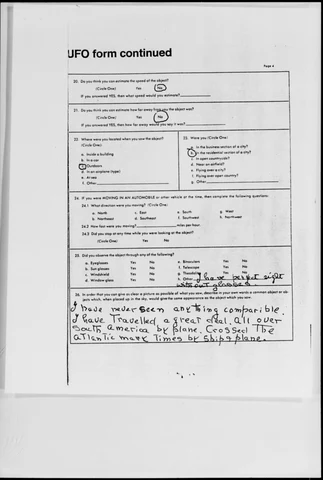 UFO form continued
Page 4
20. Do you think you can estimate the speed of the object?
(Circle One) Yes No
If you answered YES, then what speed would you estimate?
21. Do you think you can estimate how far away from you the object was?
(Circle One) Yes No
If you answered YES, then how far away would you say it was?
22. Where were you located when you saw the object?
(Circle One)
a. Inside a building
b. In a car
c. Outdoors
d. In an airplane (type)
e. At sea
f. Other
23. Were you (Circle One)
a. In the business section of a city?
b. In the residential section of a city?
c. In open countryside?
d. Near an airfield?
e. Flying over a city?
f. Flying over open country?
g. Other
24. If you were MOVING IN AN AUTOMOBILE or other vehicle at the time, then complete the following questions:
24.1 What direction were you moving? (Circle One)
a. North c. East e. South g. West
b. Northeast d. Southeast f. Southwest h. Northwest
24.2 How fast were you moving? miles per hour.
24.3 Did you stop at any time while you were looking at the object?
(Circle One) Yes No
25. Did you observe the object through any of the following?
a. Eyeglasses Yes No e. Binoculars Yes No
b. Sun glasses Yes No f. Telescope Yes No
c. Windshield Yes No g. Theodolite Yes No
d. Window glass Yes No h. Other I have perfect sight
without glasses
26. In order that you can give as clear a picture as possible of what you saw, describe in your own words a common object or objects which, when placed up in the sky, would give the same appearance as the object which you saw.
I have never seen any thing comparible.
I have Travelled a great deal. All over
South America by plane. Crossed The
Atlantic many Times by ship & plane.